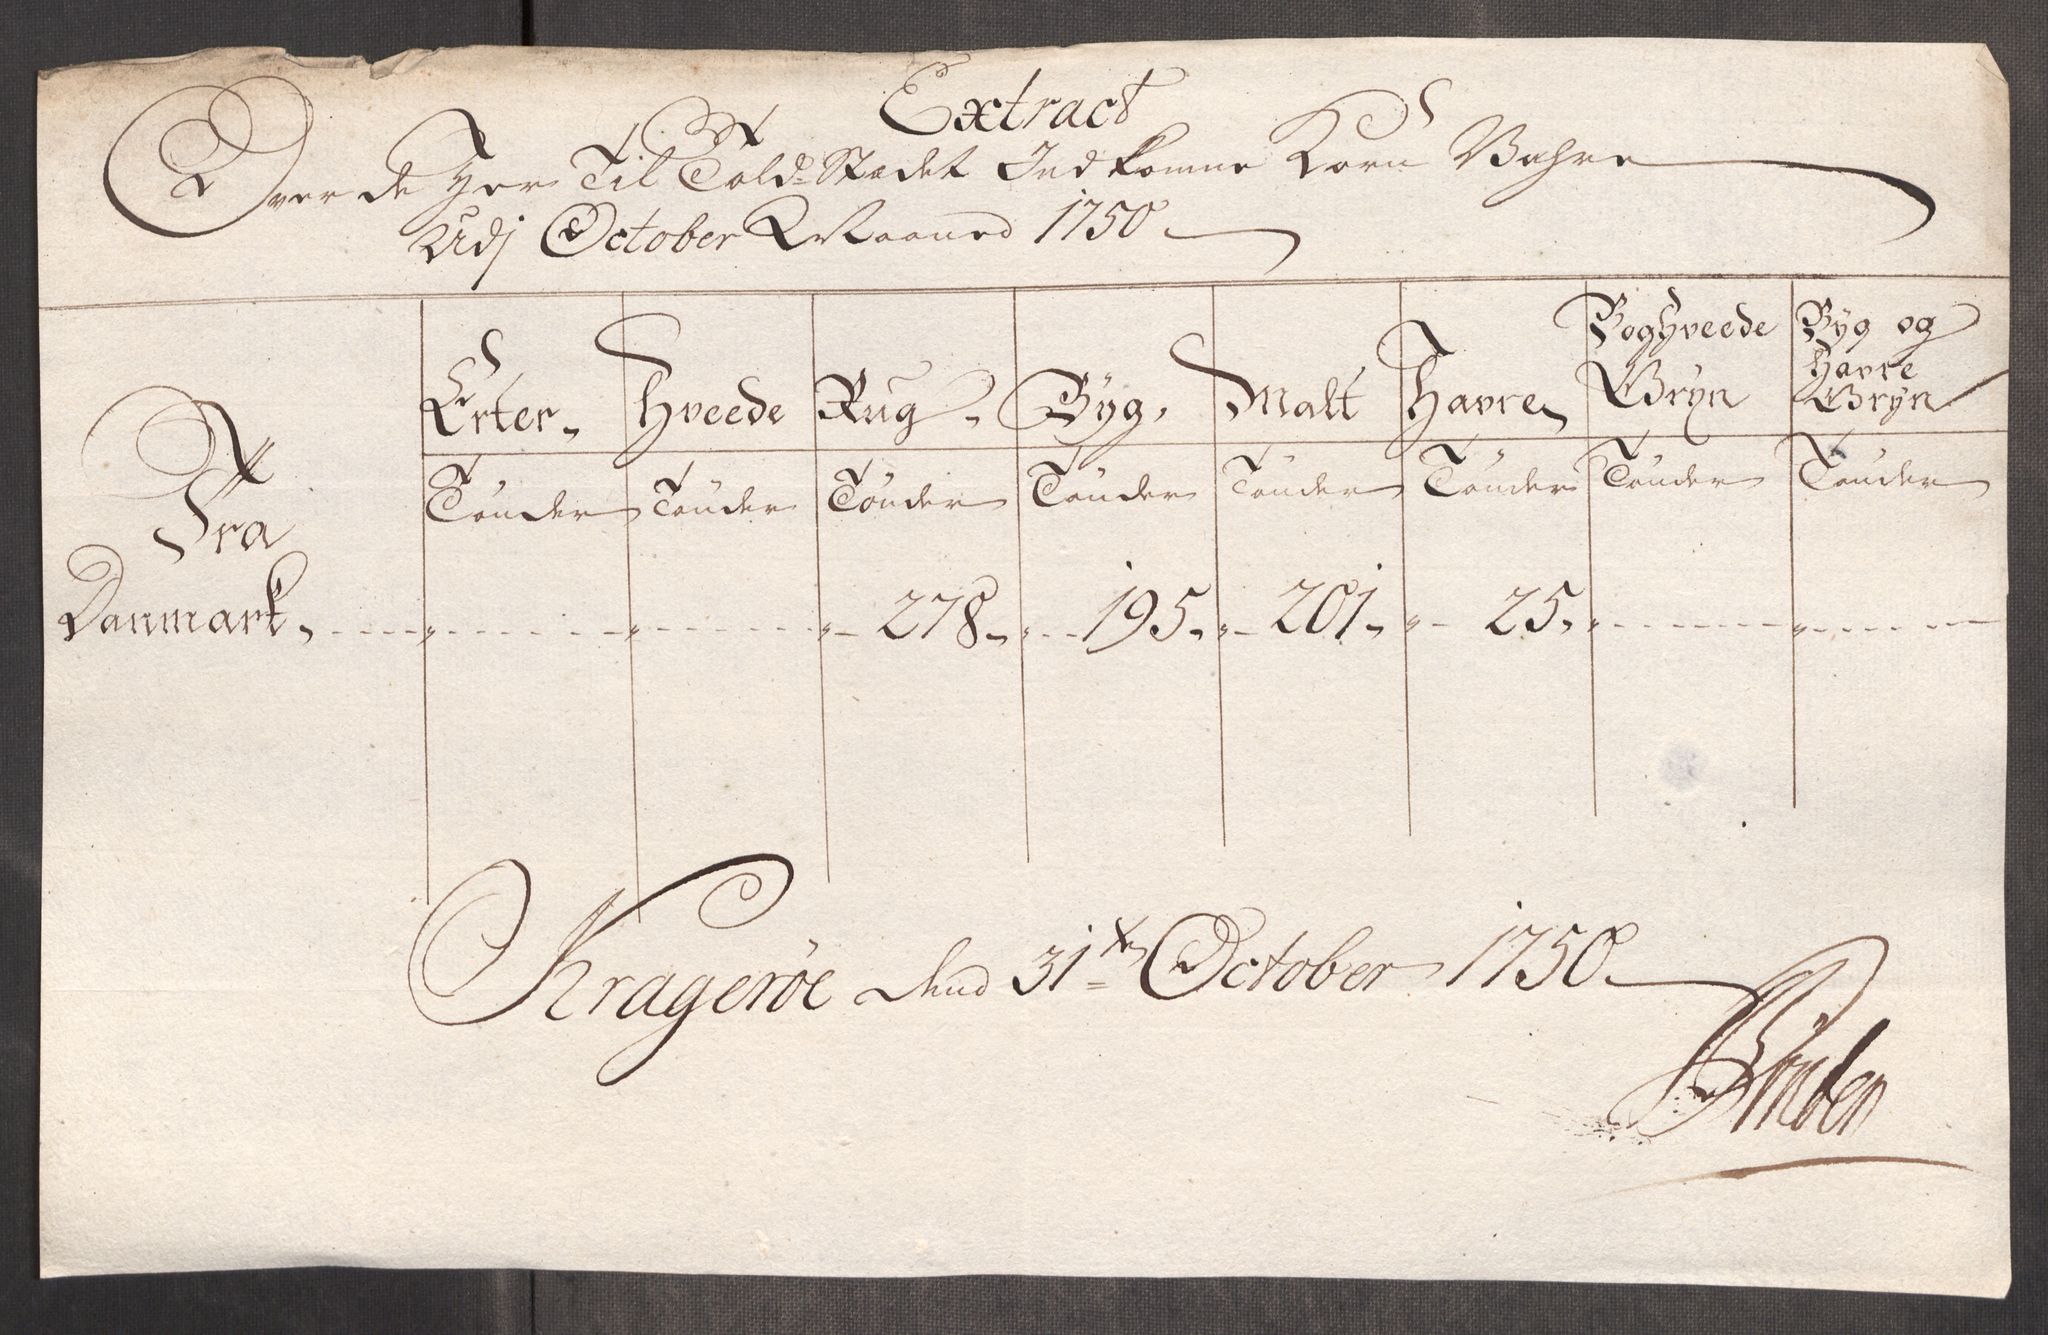 Extract
Over de Her Til Told-Stædet Ind komne Korn Vahre
Udj October Maaned 1750
Erter
Hveede
Rug
Byg
Malt
Havre
Boghveede Gryn
Byg og Havre Gryn
Tönder Tönder Tönder Tönder Tönder Tönder Tönder Tönder
Fra
Danmark 278 195 201 25
Krageröe dend 31te October 1750